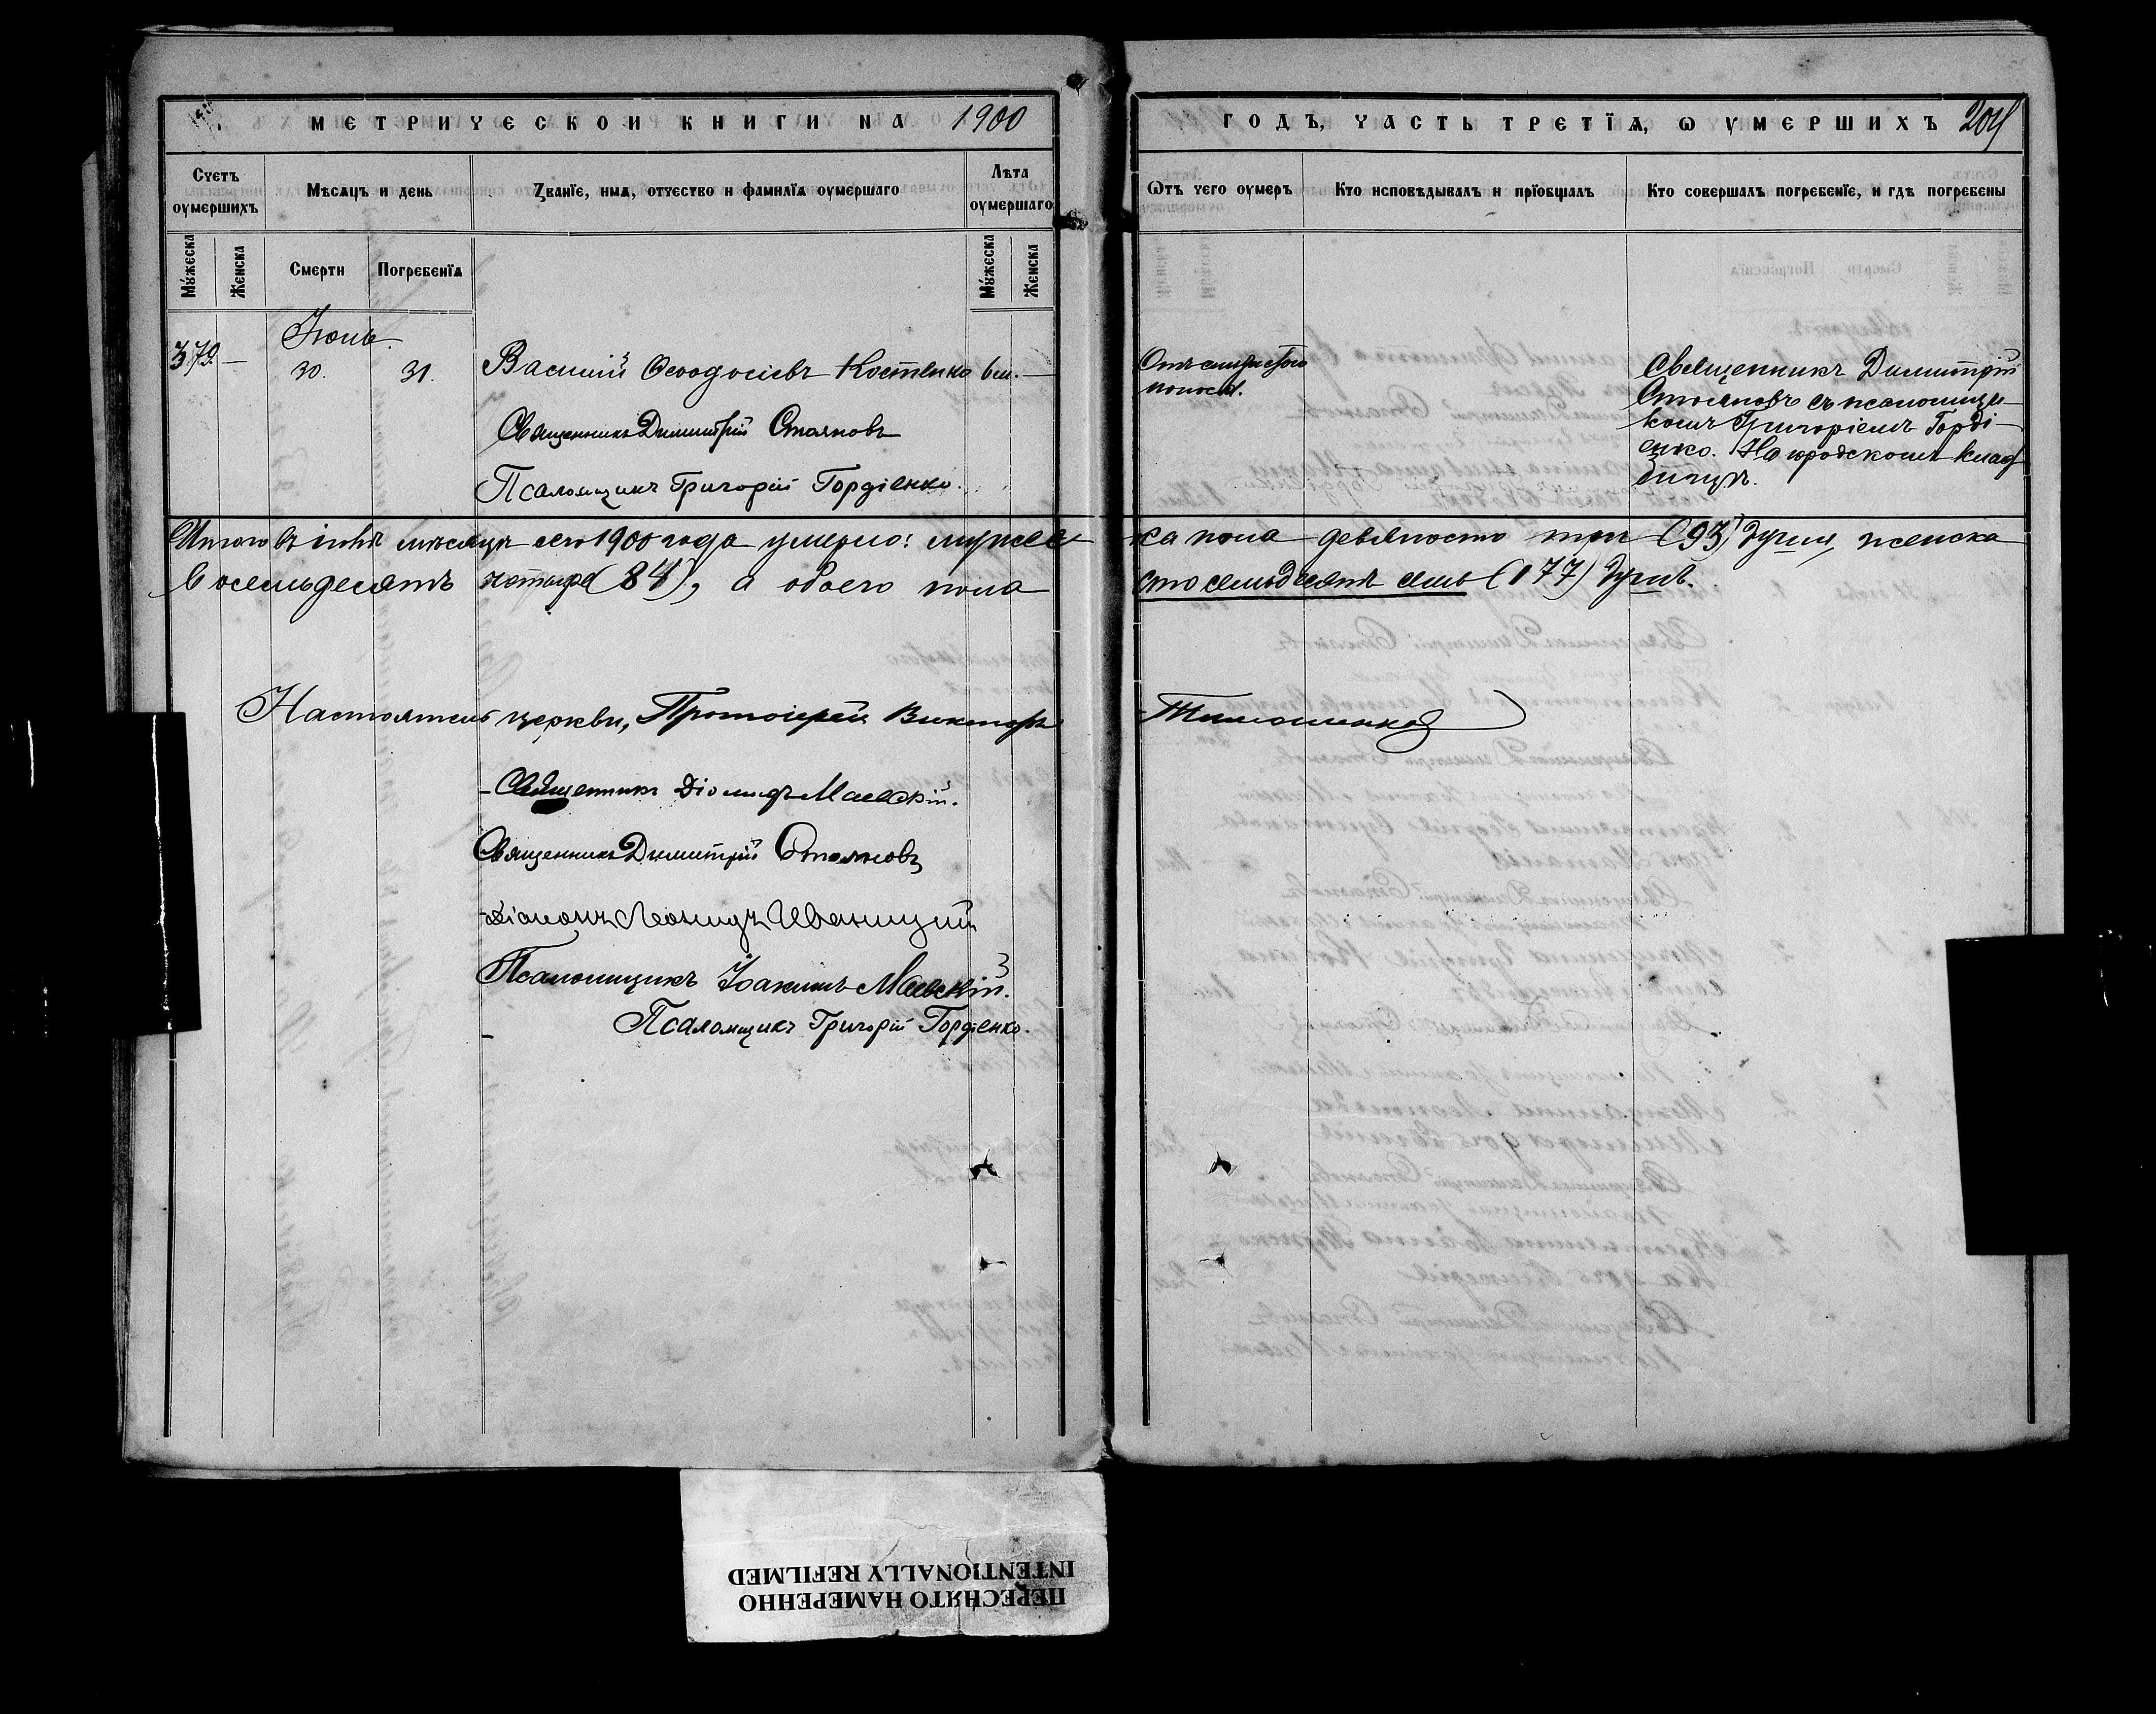 МЕТРИЧЕСКОЙ КНИГИ НА 1900
ГОДЪ, ЧАСТЬ ТРЕТЇѦ, Ѡ ОУМЕРШИХЪ 204
Счетъ оумершихъ
Мѣсѧцъ и день
Званїе, имѧ, отчество и фамилїѧ оумершаго
Лѣта оумершаго
Ѿтъ чего оумеръ
Кто исповѣдывалъ и прїобщалъ
Кто совершалъ погребенїе, и гдѣ погребены
Мꙋжеска
Женска
Смерти
Погребенїѧ
Мꙋжеска
Женска
Іюль.
379. — 30. 31. Василій Ѳеодосіевъ Костенко 6 м. —
Священникъ Димитрій Стояновъ
Псаломщикъ Григорій Гордіенко.
Отъ
поноса.
Священникъ Димитрій
Стояновъ съ псаломщи-
комъ Григоріемъ Горді-
енко. На городскомъ клад
бищѣ.
Итого въ іюлѣ мѣсяцѣ сего 1900 года умерло: мужес
ка пола девяносто три (93) души, женска
восемьдесятъ четыре (84), а обоего пола
сто семьдесятъ семь (177) душъ.
Настоятель церкви, Протоіерей Викторъ
Священникъ Діомидъ Маевскій.
Священникъ Димитрій Стояновъ
Діаконъ Леонидъ Иваницкій
Псаломщикъ Іоакимъ Маевскій.
Псаломщикъ Григорій Гордіенко.
ПЕРЕСНЯТО НАМЕРЕННО
INTENTIONALLY REFILMED